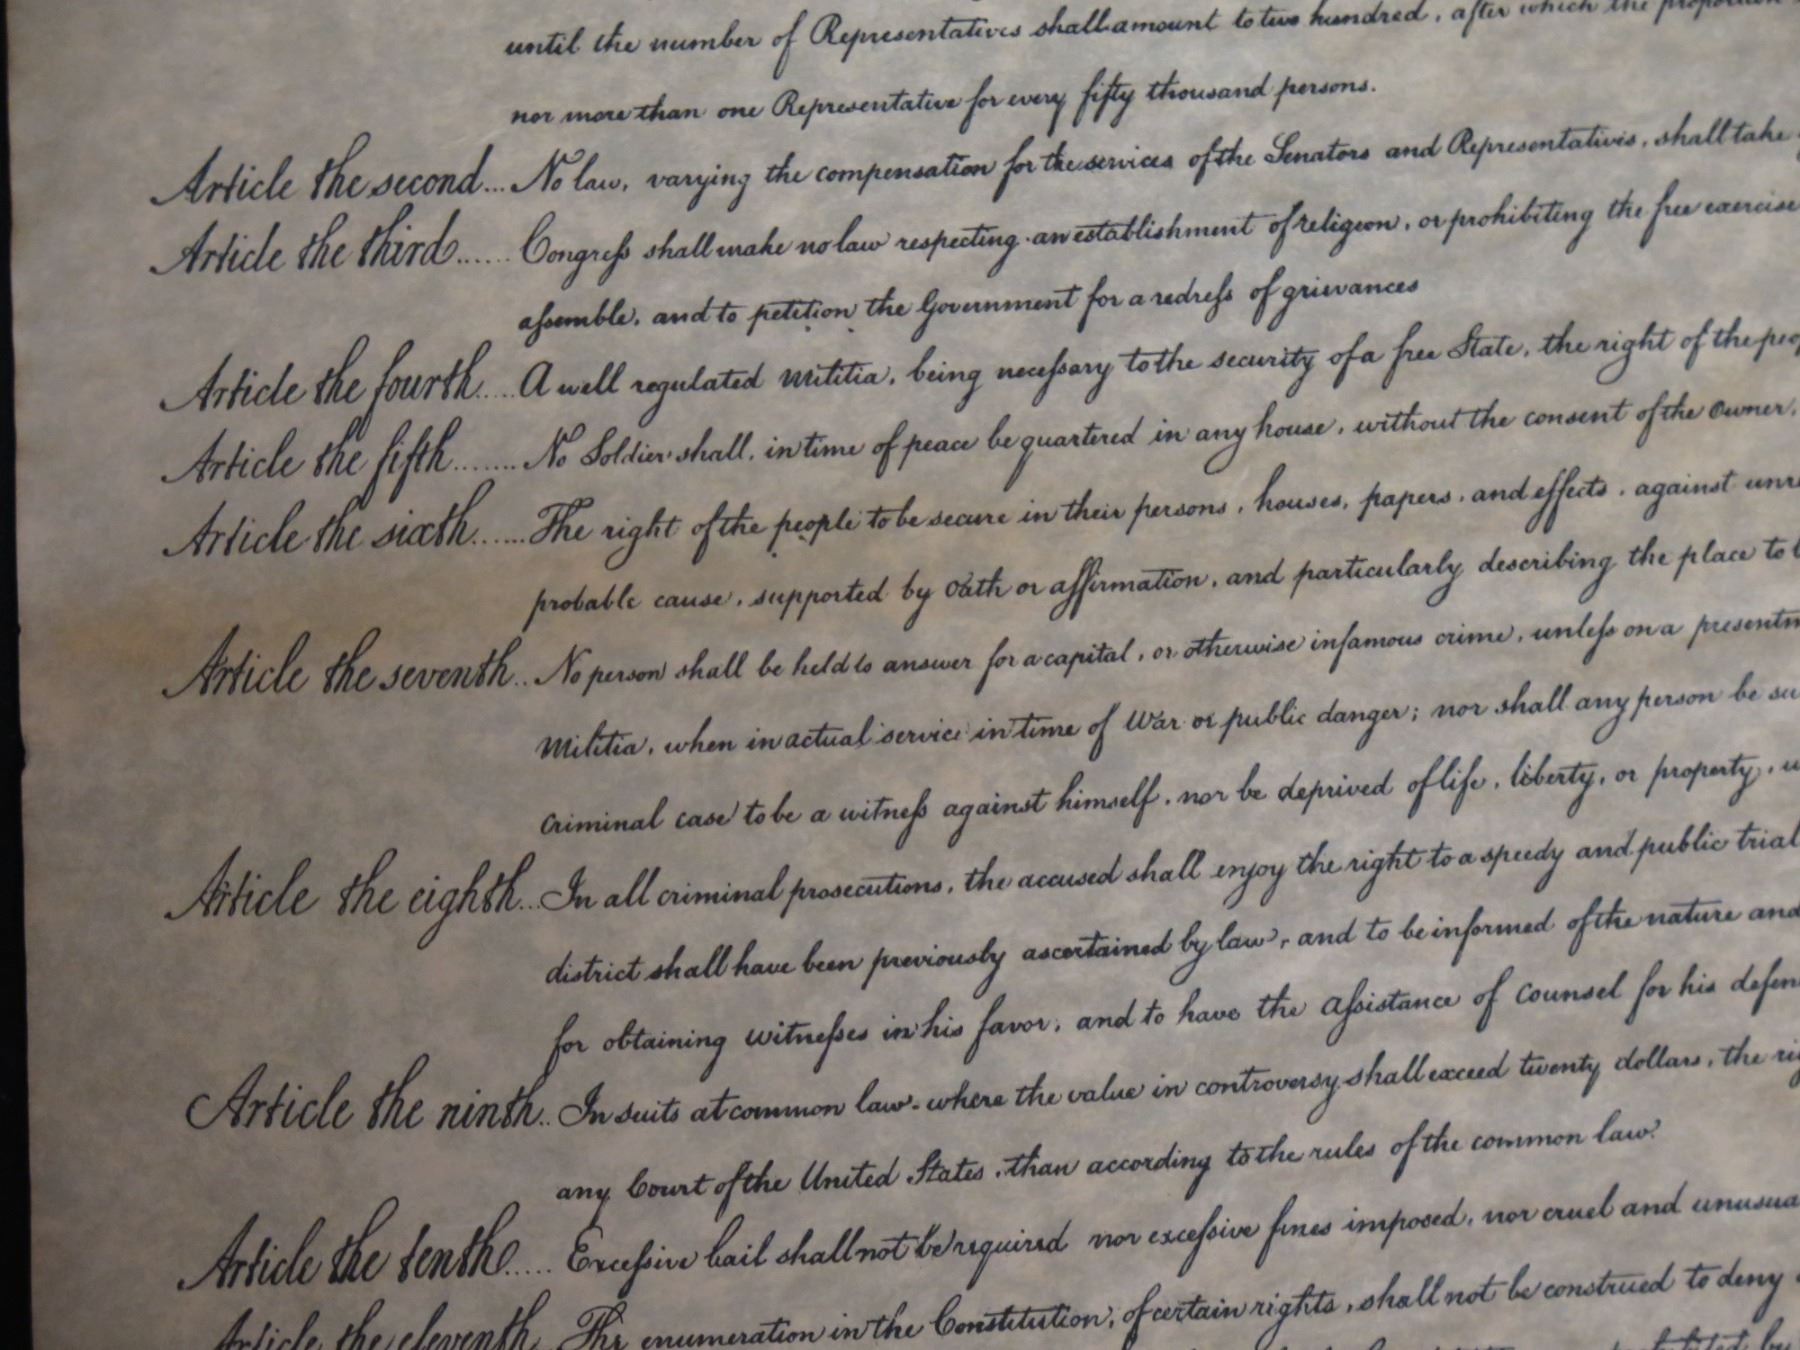 until the number of Representatives shall amount to two hundred, after which the proportion
nor more than one Representative for every fifty thousand persons.
Article the second... No law, varying the compensation for the services of the Senators and Representatives, shall take
Article the third...... Congreſs shall make no law respecting an establishment of religion, or prohibiting the free exercise
aſsemble, and to petition the Government for a redreſs of grievances
Article the fourth..... A well regulated Militia, being neceſsary to the security of a free State, the right of the peop
Article the fifth....... No Soldier shall, in time of peace be quartered in any house, without the consent of the Owner,
Article the sixth...... The right of the people to be secure in their persons, houses, papers, and effects, against unre
probable cause, supported by Oath or affirmation, and particularly describing the place to b
Article the seventh.. No person shall be held to answer for a capital, or otherwise infamous crime, unleſs on a presentm
Militia, when in actual service in time of War or public danger; nor shall any person be su
criminal case to be a witneſs against himself, nor be deprived of life, liberty, or property, w
Article the eighth... In all criminal prosecutions, the accused shall enjoy the right to a speedy and public trial
district shall have been previously ascertained by law, and to be informed of the nature and
for obtaining witneſses in his favor, and to have the Aſsistance of Counsel for his defen
Article the ninth.. In suits at common law, where the value in controversy shall exceed twenty dollars, the rig
any Court of the United States, than according to the rules of the common law.
Article the tenth..... Exceſsive bail shall not be required nor exceſsive fines imposed, nor cruel and unusua
Article the eleventh The enumeration in the Constitution, of certain rights, shall not be construed to deny
by